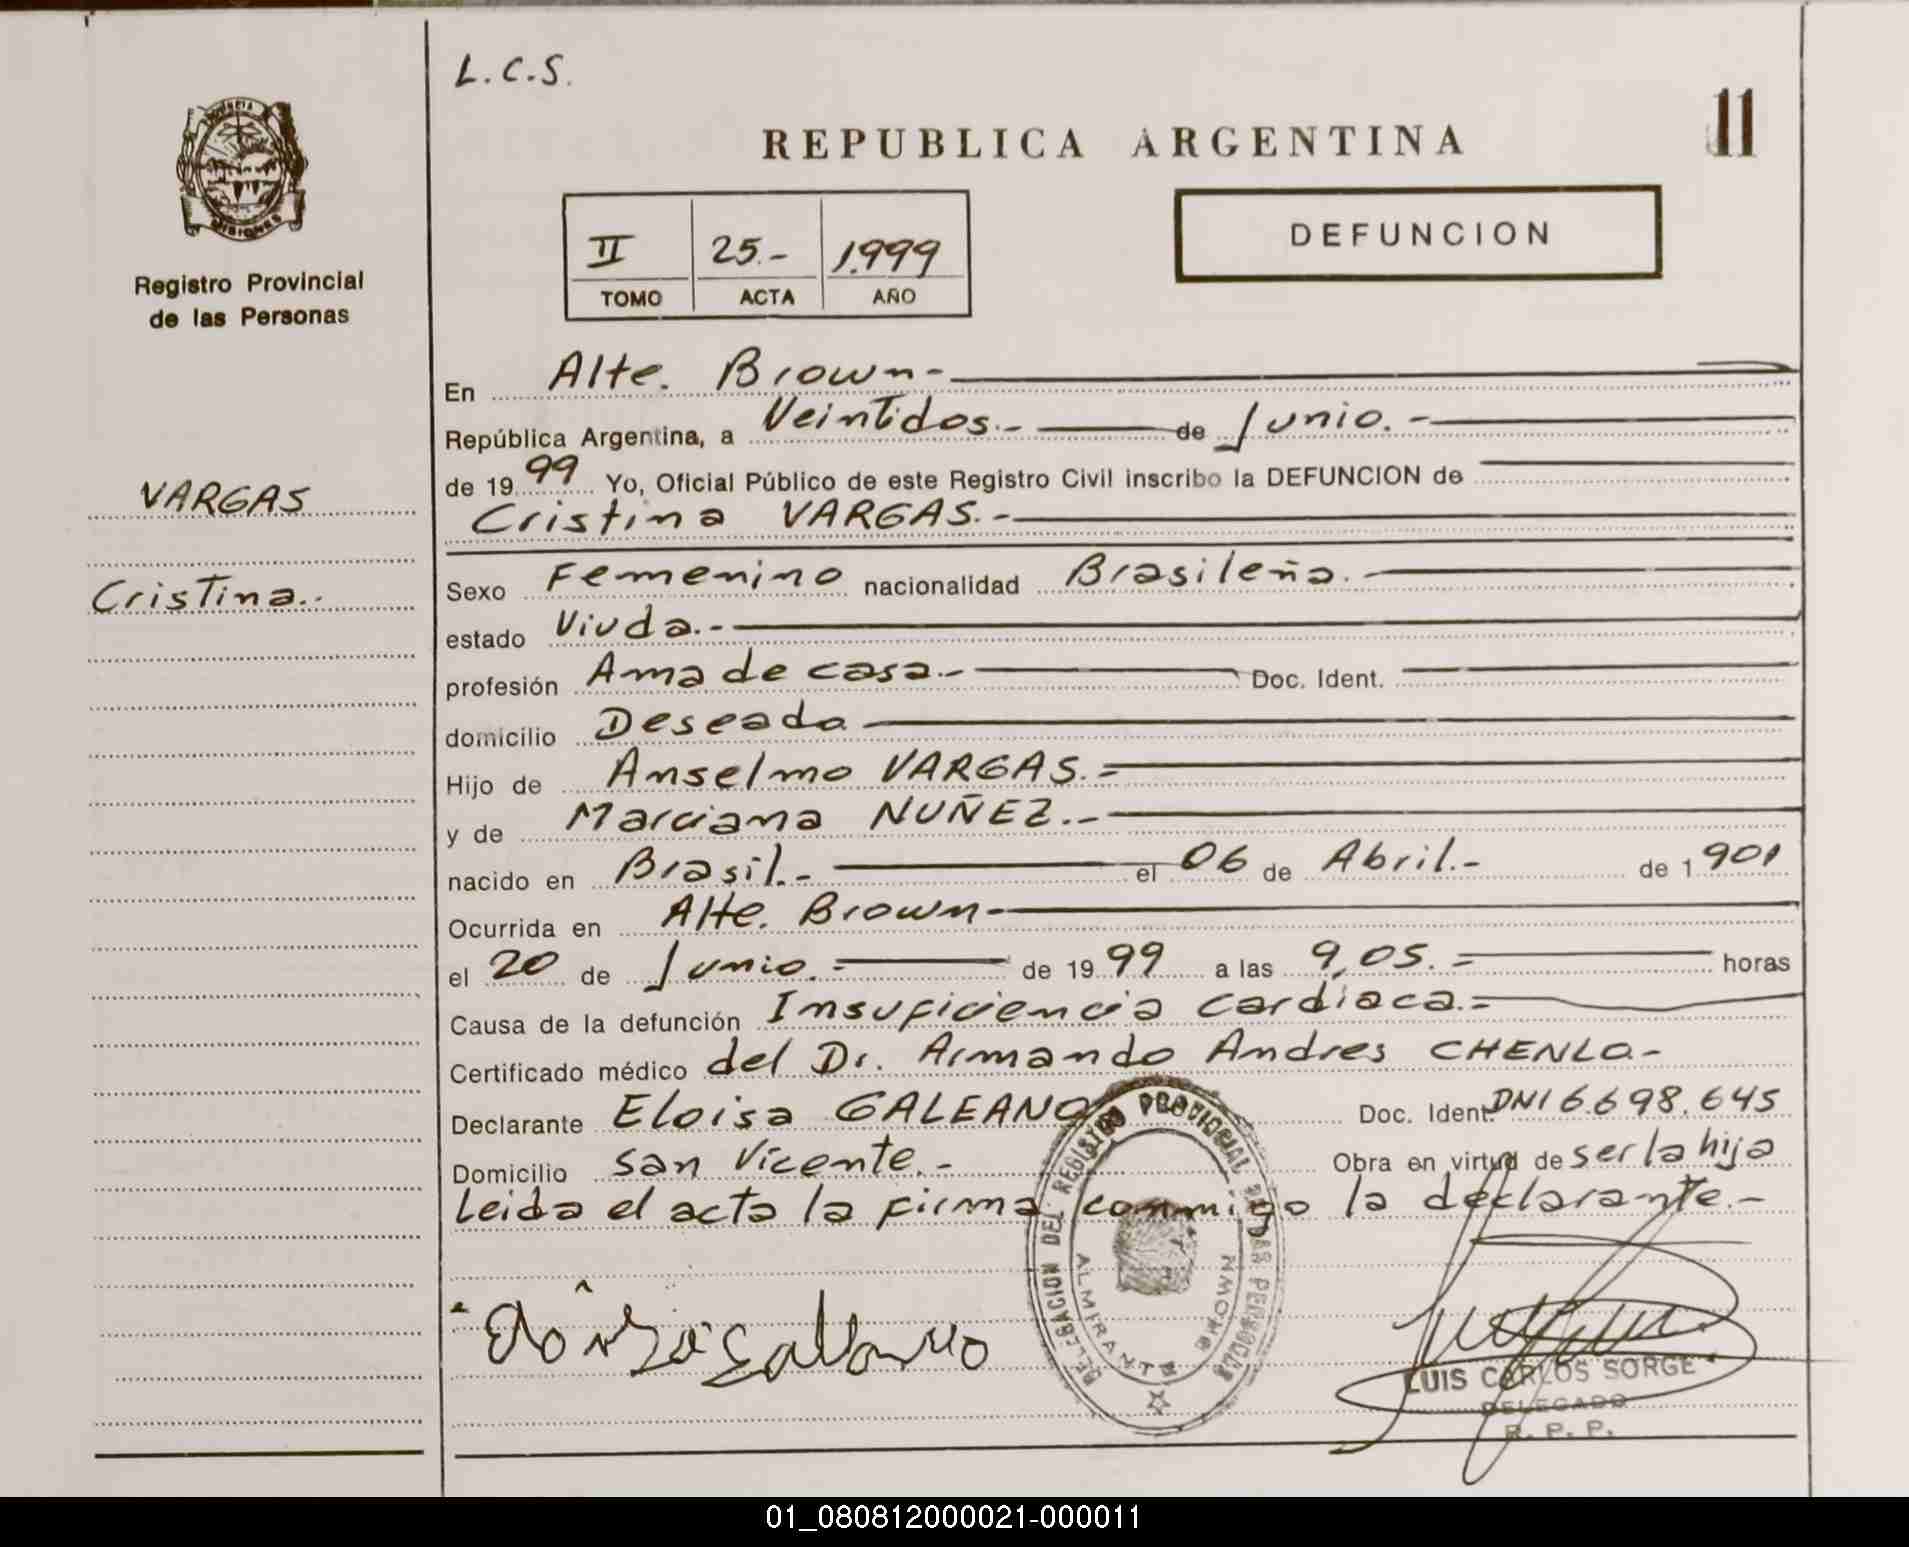 L.C.S.
REPUBLICA ARGENTINA
11
PROVINCIA
MISIONES
Registro Provincial
de las Personas
II 25.- 1.999
TOMO ACTA AÑO
DEFUNCION
VARGAS
Cristina.-
En Alte. Brown-
República Argentina, a Veintidos.- de Junio.-
de 1999 Yo, Oficial Público de este Registro Civil inscribo la DEFUNCION de
Cristina VARGAS.-
Sexo Femenino nacionalidad Brasileña.-
estado Viuda.-
profesión Ama de casa.- Doc. Ident.
domicilio Deseado
Hijo de Anselmo VARGAS.=
y de Marciana NUÑEZ.-
nacido en Brasil.- el 06 de Abril.- de 1901
Ocurrida en Alte. Brown-
el 20 de Junio.= de 1999 a las 9,05.= horas
Causa de la defunción Insuficiencia cardiaca.=
Certificado médico del Dr. Armando Andres CHENLO.-
Declarante Eloisa GALEANO Doc. Ident. DNI 6.698.645
Domicilio San Vicente.- Obra en virtud de ser la hija
Leida el acta la firma conmigo la declarante.-
DELEGACION DEL REGISTRO PROVINCIAL DE LAS PERSONAS
ALMIRANTE BROWN
LUIS CARLOS SORGE
DELEGADO
R. P. P.
01_080812000021-000011